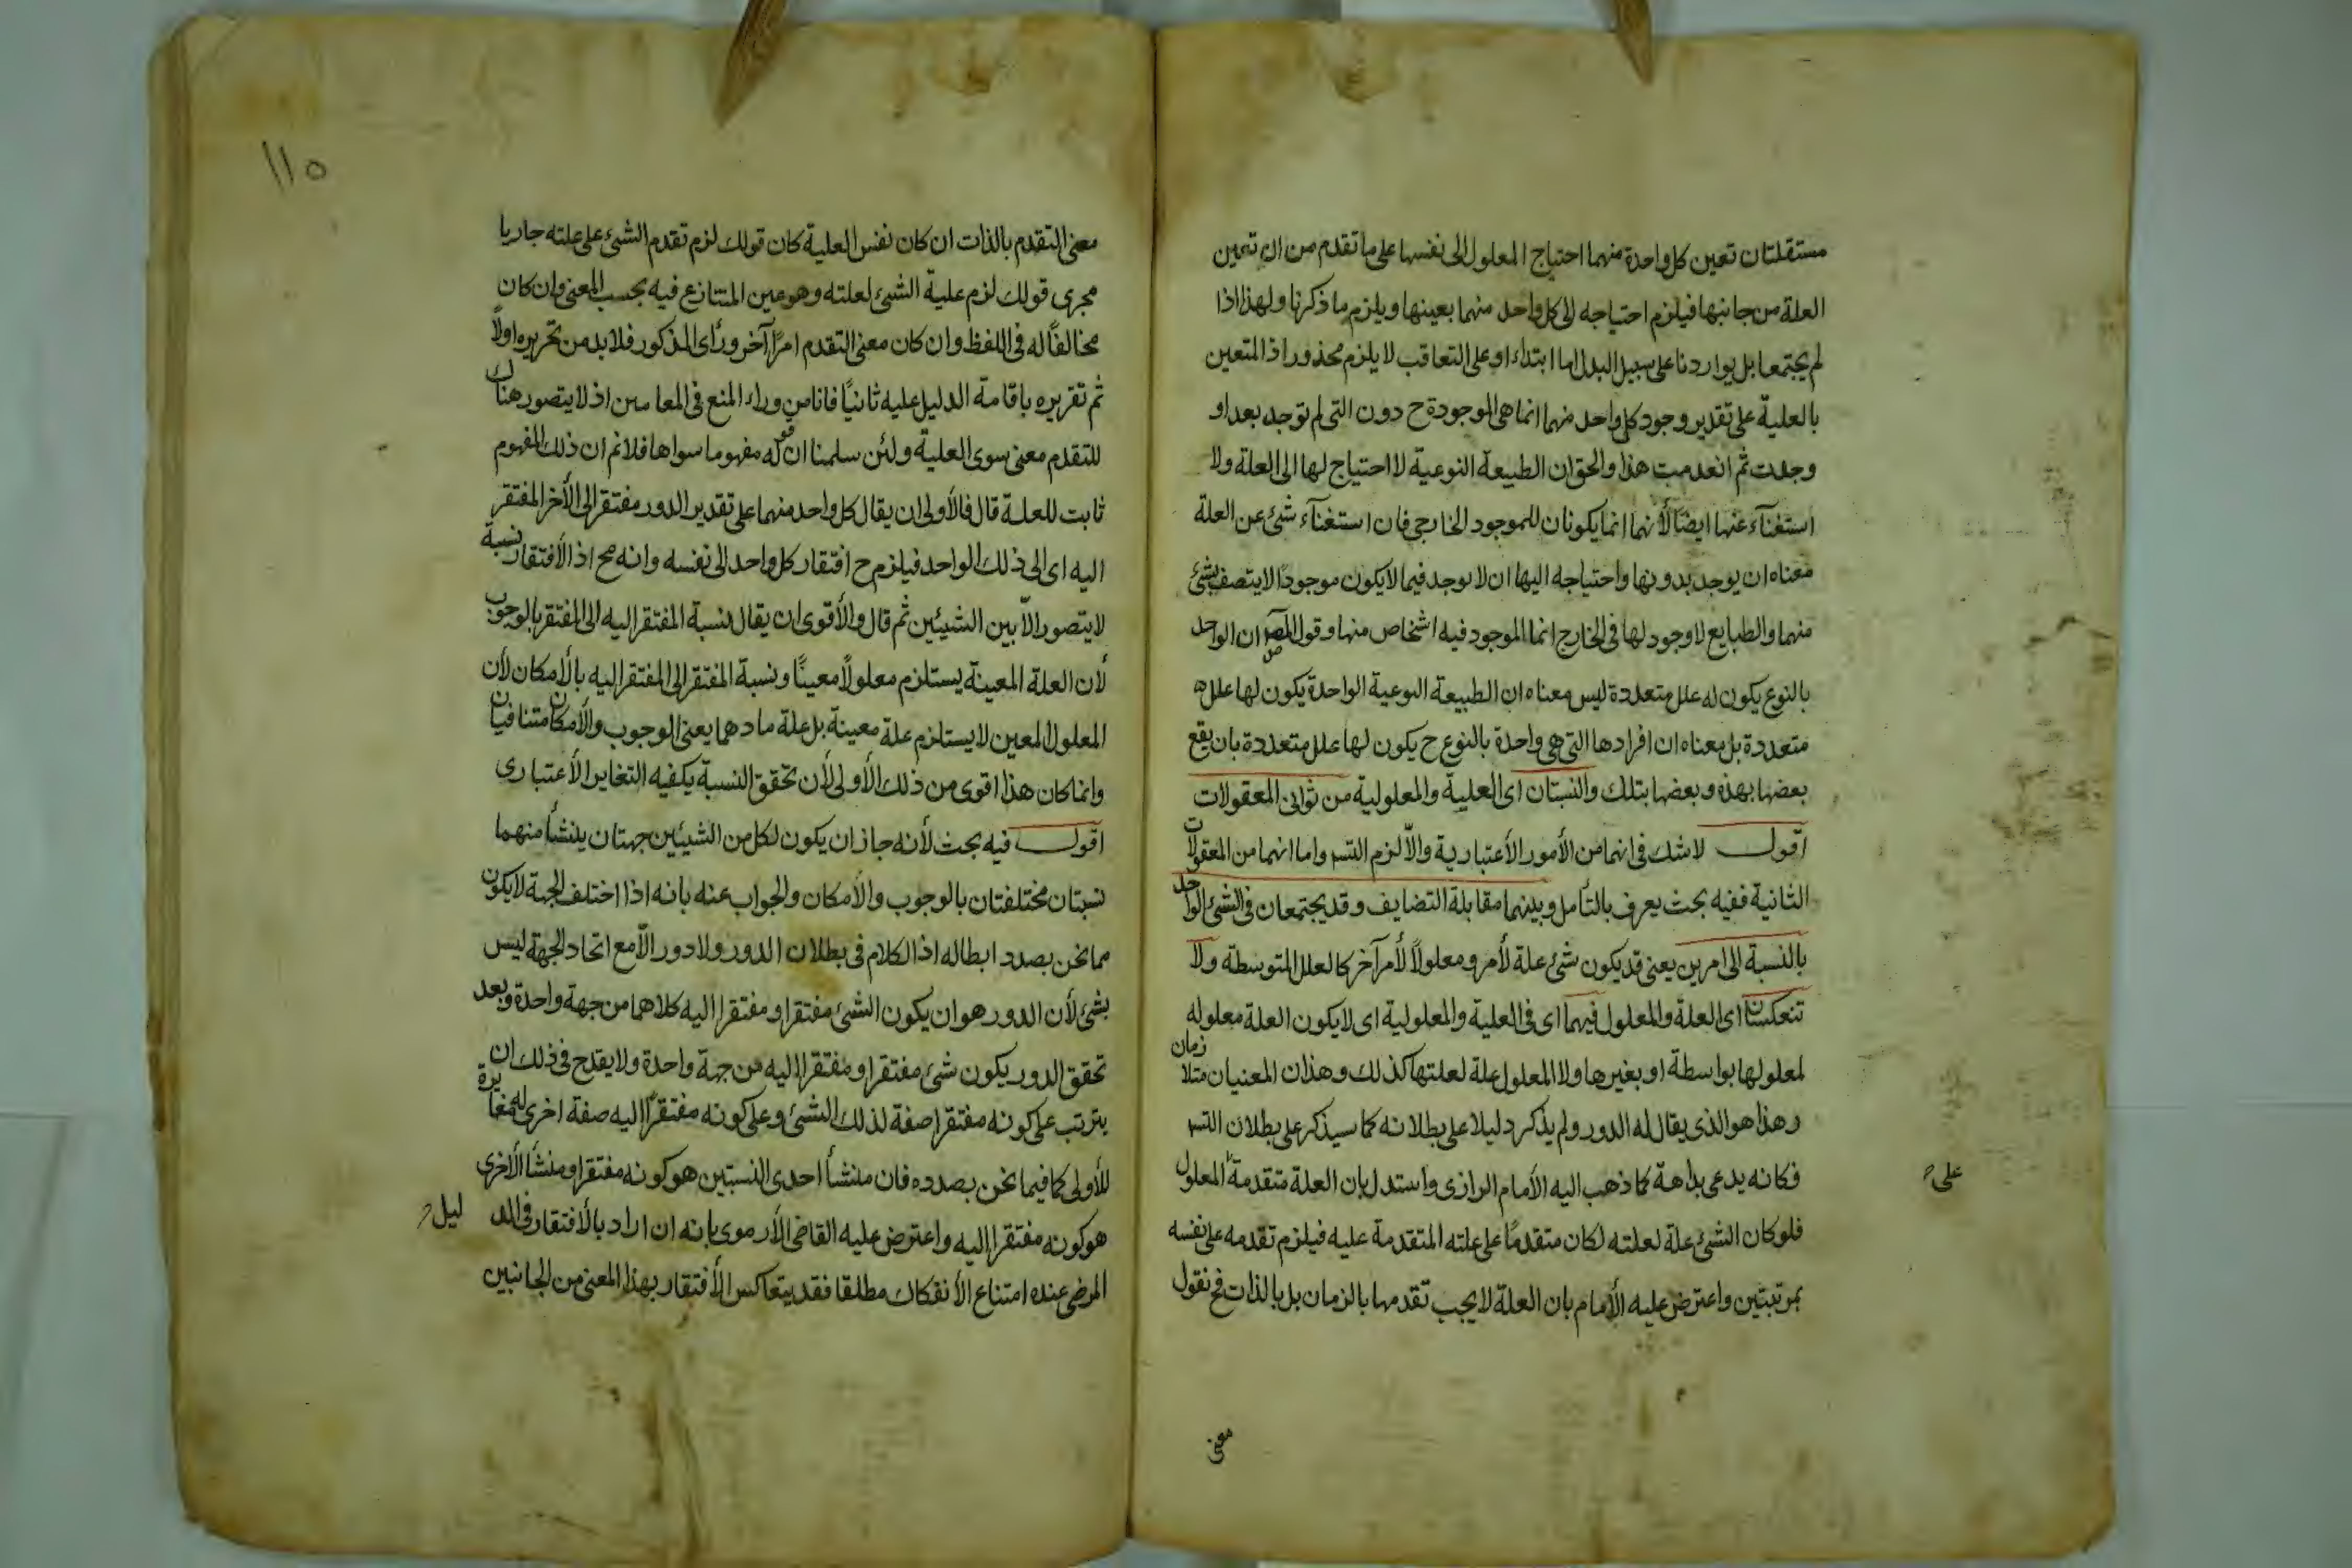 مستقلتان تعين كل واحدة منهما احتياج المعلول الى نفسها على ما تقدم من ان تعين
العلة من جانبها فيلزم احتياجه الى كل واحد منهما بعينها ويلزم ما ذكرنا ولهذا اذا
لم يجتمعا بل يواردنا على سبيل البدل اما ابتداء او على التعاقب لا يلزم محذور اذ المتعين
بالعلية على تقدير وجود كل واحد منهما انما هى الموجودة ح دون التى لم توجد بعد او
وجدت ثم انعدمت هذا والحق ان الطبيعة النوعية لا احتياج لها الى العلة ولا
استغنآء عنها ايضا لأنهما انما يكونان للموجود الخارجى فان استغنآء شئ عن العلة
معناه ان يوجد بدونها واحتياجه اليها ان لا يوجد فيما لا يكون موجودا لا يتصف بشئ
منهما والطبايع لا وجود لها فى الخارج انما الموجود فيه اشخاص منها وقول المص ان الواحد
بالنوع يكون له علل متعددة ليس معناه ان الطبيعة النوعية الواحدة يكون لها علل
متعددة بل معناه ان افرادها التى هى واحدة بالنوع ح يكون لها علل متعددة بان يقع
بعضها بهذه وبعضها بتلك والنسبتان اى العلية والمعلولية من ثوانى المعقولات
اقول لا شك فى انهما من الأمور الأعتبارية والّا لزم التسـ واما انهما من المعقولات
الثانية ففيه بحث يعرف بالتأمل وبينهما مقابلة التضايف وقد يجتمعان فى الشئ الواحد
بالنسبة الى امرين يعنى قد يكون شئ علة لأمر ومعلولاً لأمر آخر كالعلل المتوسطة ولا
تنعكسان اى العلة والمعلول فيهما اى فى العلية والمعلولية اى لا يكون العلة معلوله
لمعلولها بواسطة او بغيرها ولا المعلول علة لعلتها كذلك وهذان المعنيان متلازمان
وهذا هو الذى يقال له الدور ولم يذكر دليلا على بطلانه كما سيذكر على بطلان التسـ
فكانه يدعى بداهة كما ذهب اليه الأمام الرازى واستدل بان العلة متقدمة المعلول
على
فلو كان الشئ علة لعلته لكان متقدمًا على علته المتقدمة عليه فيلزم تقدمه على نفسه
بمرتبتين واعترض عليه الأمام بان العلة لا يجب تقدمها بالزمان بل بالذات فح نقول
معنى
١١٥
معنى التقدم بالذات ان كان نفس العلية كان قولك لزم تقدم الشئ على علته جاريا
مجرى قولك لزم علية الشئ لعلته وهو عين المتنازع فيه بحسب المعنى وان كان
مخالفًا له فى اللفظ وان كان معنى التقدم امرًا آخر ورأى المذكور فلا بد من تحريره اولًا
ثم تقريره باقامة الدليل عليه ثانيًا فانا من وراء المنع فى المقامين اذ لا يتصور هناك
للتقدم معنى سوى العلية ولئن سلمنا ان له مفهوما سواها فلا نم ان ذلك المفهوم
ثابت للعلة قال فالأولى ان يقال كل واحد منهما على تقدير الدور مفتقر الى الأخر المفتقر
اليه اى الى ذلك الواحد فيلزم ح افتقار كل واحد الى نفسه وانه مح اذ الأفتقار نسبة
لا يتصور الّا بين الشيئين ثم قال والأقوى ان يقال نسبة المفتقر اليه الى المفتقر بالوجوب
لأن العلة المعينة يستلزم معلولًا معينًا ونسبة المفتقر الى المفتقر اليه بالأمكان لأن
المعلول المعين لا يستلزم علة معينة بل علة ما وهما يعنى الوجوب والأمكان متنافيان
وانما كان هذا اقوى من ذلك الأولى لأن تحقق النسبة يكفيه التغاير الأعتبارى
اقول فيه بحث لأنه جاز ان يكون لكل من الشيئين جهتان ينشأ منهما
نسبتان مختلفتان بالوجوب والأمكان والجواب عنه بانه اذا اختلف الجهة لا يكون
مما نحن بصدد ابطاله اذ الكلام فى بطلان الدور ولا دور الّا مع اتحاد الجهة ليس
بشئ لأن الدور هو ان يكون الشئ مفتقرا ومفتقرا اليه كلاهما من جهة واحدة وبعد
تحقق الدور يكون شئ مفتقرا ومفتقرا اليه من جهة واحدة ولا يقدح فى ذلك ان
يترتب على كونه مفتقرا صفة لذلك الشئ وعلى كونه مفتقرًا اليه صفة اخرى له مغايرة
للأولى كما فيما نحن بصدده فان منشأ احدى النسبتين هو كونه مفتقرا ومنشأ الأخرى
هو كونه مفتقرا اليه واعترض عليه القاضى الأرموى بانه ان اراد بالأفتقار فى الد
ليل
المرضى عنده امتناع الأنفكاك مطلقا فقد يتعاكس الأفتقار بهذا المعنى من الجانبين